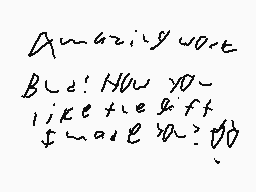 Amazing work
Bud! How you
like the gift
I made you?